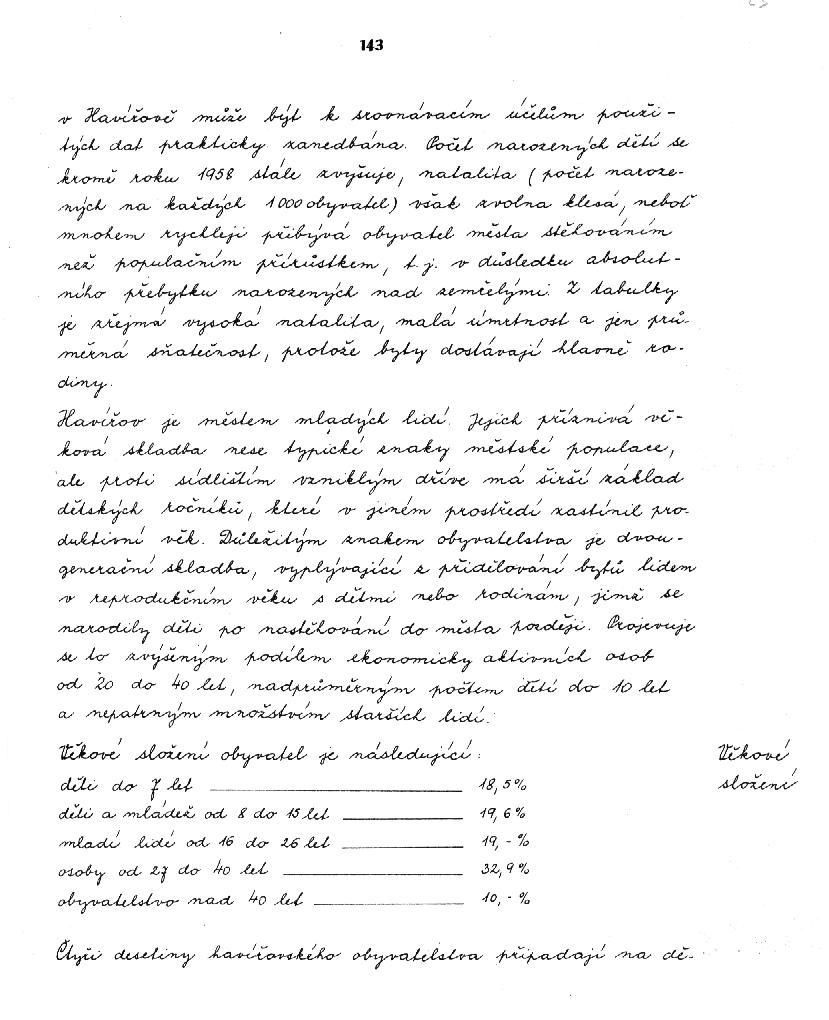 143
v Havířově může být k srovnávacím účelům použi-
tých dat prakticky zanedbána. Počet narozených dětí se
kromě roku 1958 stále zvyšuje, natalita (počet naroze-
ných na každých 1000 obyvatel) však zvolna klesá, neboť
mnohem rychleji přibývá obyvatel města stěhováním
než populačním přírůstkem, t.j. v důsledku absolut-
ního přebytku narozených nad zemřelými. Z tabulky
je zřejmá vysoká natalita, malá úmrtnost a jen prů-
měrná sňatečnost, protože byty dostávají hlavně ro-
diny.
Havířov je městem mladých lidí. Jejich příznivá vě-
ková skladba nese typické znaky městské populace,
ale proti sídlištím vzniklým dříve má širší základ
dětských ročníků, které v jiném prostředí zastínil pro-
duktivní věk. Důležitým znakem obyvatelstva je dvou-
generační skladba, vyplývající z přidělování bytů lidem
v reprodukčním věku s dětmi nebo rodinám, jimž se
narodily děti po nastěhování do města později. Projevuje
se to zvýšeným podílem ekonomicky aktivních osob
od 20 do 40 let, nadprůměrným počtem dětí do 10 let
a nepatrným množstvím starších lidí.
Věkové složení obyvatel je následující:
Věkové
složení
děti do 7 let 18,5%
děti a mládež od 8 do 15 let 19,6%
mladí lidí od 16 do 26 let 19,-%
osoby od 27 do 40 let 32,9%
obyvatelstvo nad 40 let 10,-%
Čtyři desetiny havířovského obyvatelstva připadají na dě-